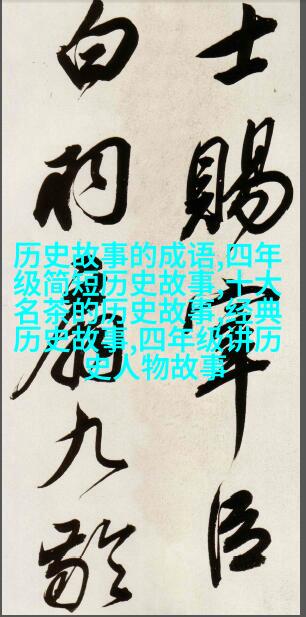 士賜宰臣
白羽扇九齡
历史故事的成语,四年
级简短历史故事,十大
名茶的历史故事,经典
历史故事,四年级讲历
史人物故事